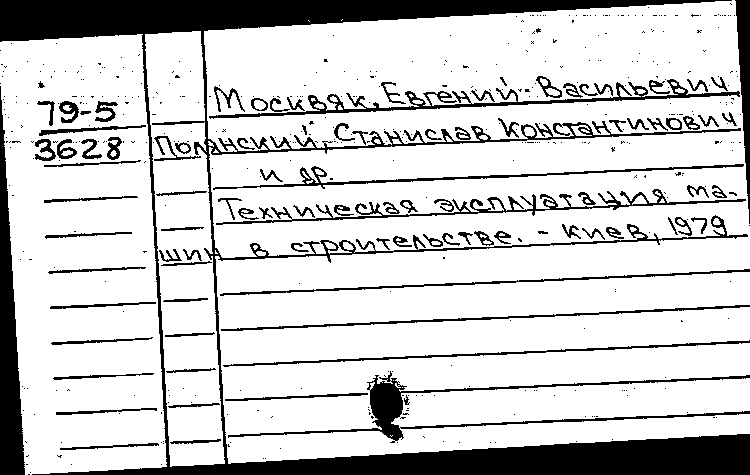 79-5
3628
Москвяк, Евгений Васильевич
Полянский, Станислав Константинович
и др.
Техническая эксплуатация ма-
шин в строительстве. - Киев, 1979